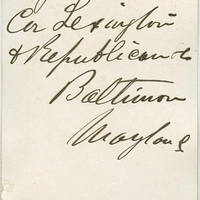 Cor Lexington
& Republican sts
Baltimore
Maryland